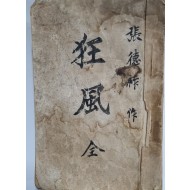 張德祚 作
狂風 全